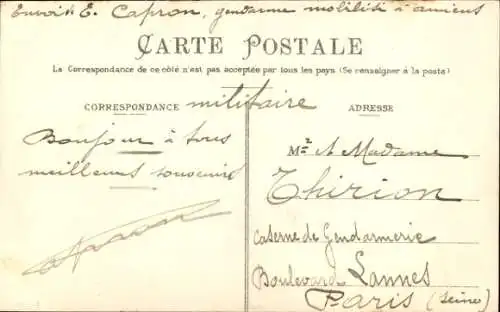 Envoi E. Capron, gendarme mobilisé à amiens
CARTE POSTALE
La Correspondance de ce côté n'est pas acceptée par tous les pays (Se renseigner à la poste)
CORRESPONDANCE militaire
ADRESSE
Bonjour à tous
meilleurs souvenirs
Capron
Mr et Madame
Thirion
Caserne de Gendarmerie
Boulevard Lannes
Paris (Seine)